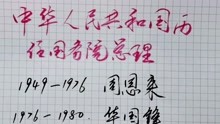 中华人民共和国历
任国务院总理
1949-1976 周恩来
1976-1980. 华国锋